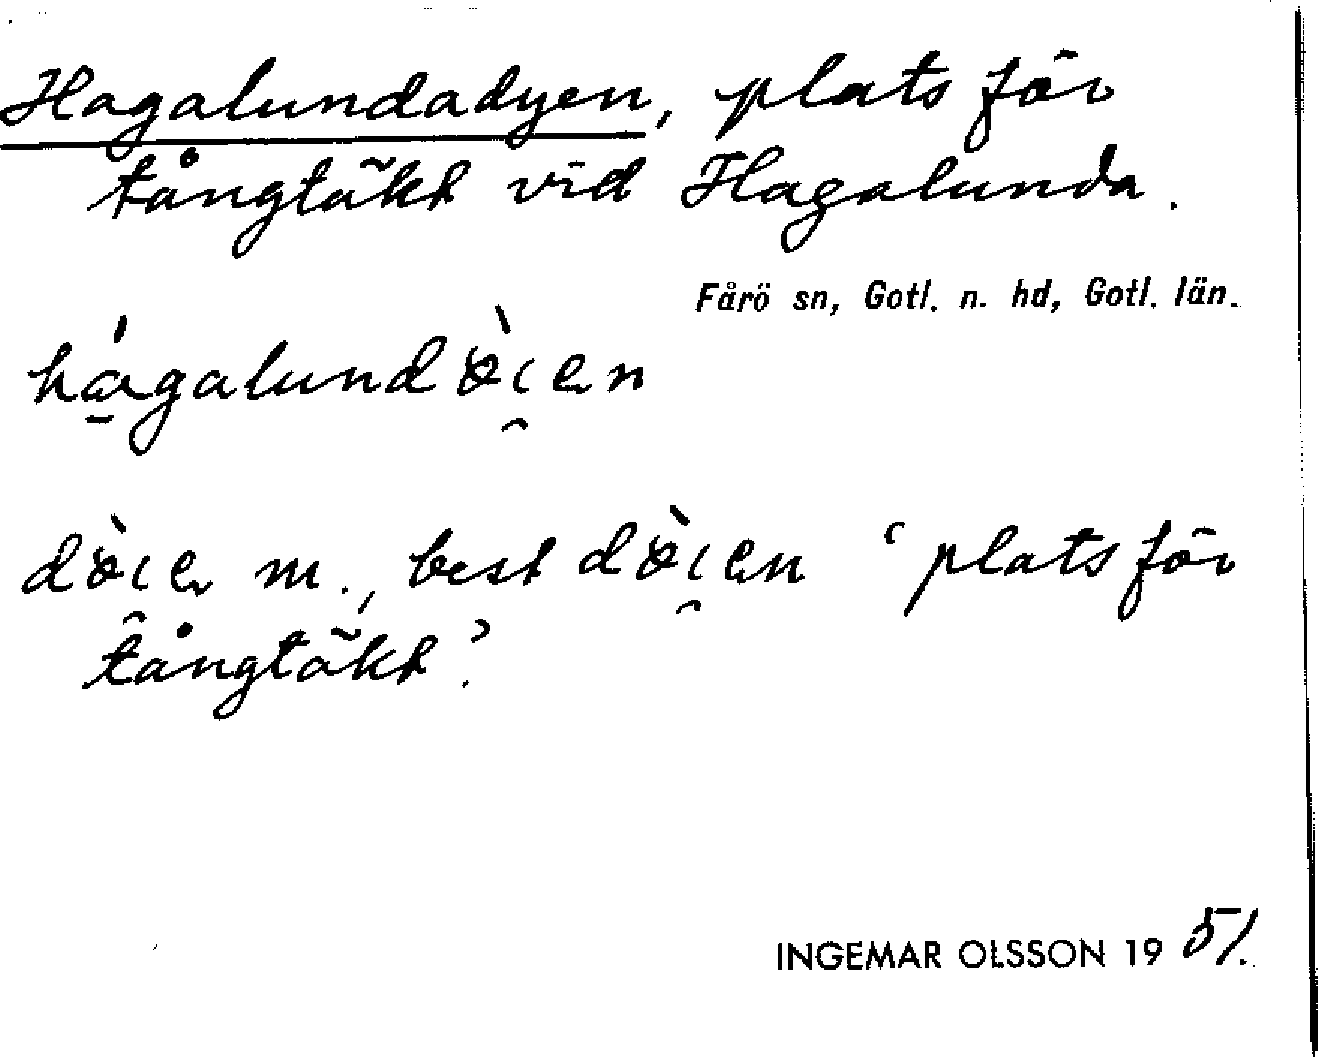 Hagalundadyen, plats för
tångtäkt vid Hagalunda.
Fårö sn, Gotl. n. hd, Gotl. län.
m., best ‘plats för
tångtäkt’.
INGEMAR OLSSON 19 51.